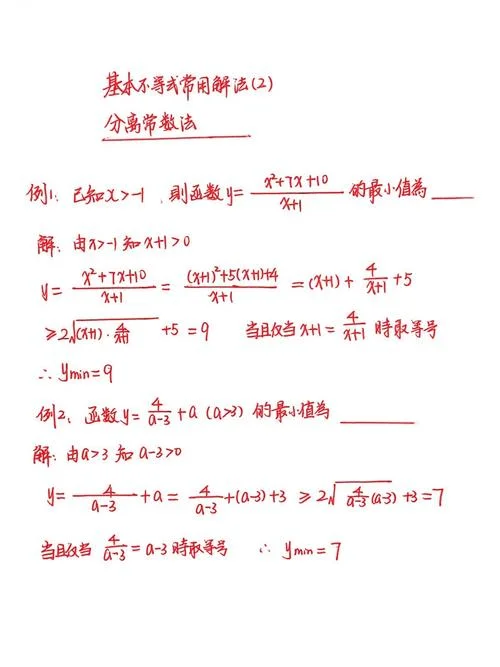 基本不等式常用解法(2)
分离常数法
例1: 已知x>-1, 则函数y=\frac{x²+7x+10}{x+1}的最小值為____
解: 由x>-1知x+1>0
y=\frac{x²+7x+10}{x+1}=\frac{(x+1)²+5(x+1)+4}{x+1}=(x+1)+\frac{4}{x+1}+5
≥2\sqrt{(x+1)·\frac{4}{x+1}}+5=9 当且仅当x+1=\frac{4}{x+1}時取等号
∴ymin=9
例2、函数y=\frac{4}{a-3}+a(a>3)的最小值為____
解: 由a>3知a-3>0
y=\frac{4}{a-3}+a=\frac{4}{a-3}+(a-3)+3≥2\sqrt{\frac{4}{a-3}(a-3)}+3=7
当且仅当\frac{4}{a-3}=a-3時取等号 ∴ymin=7